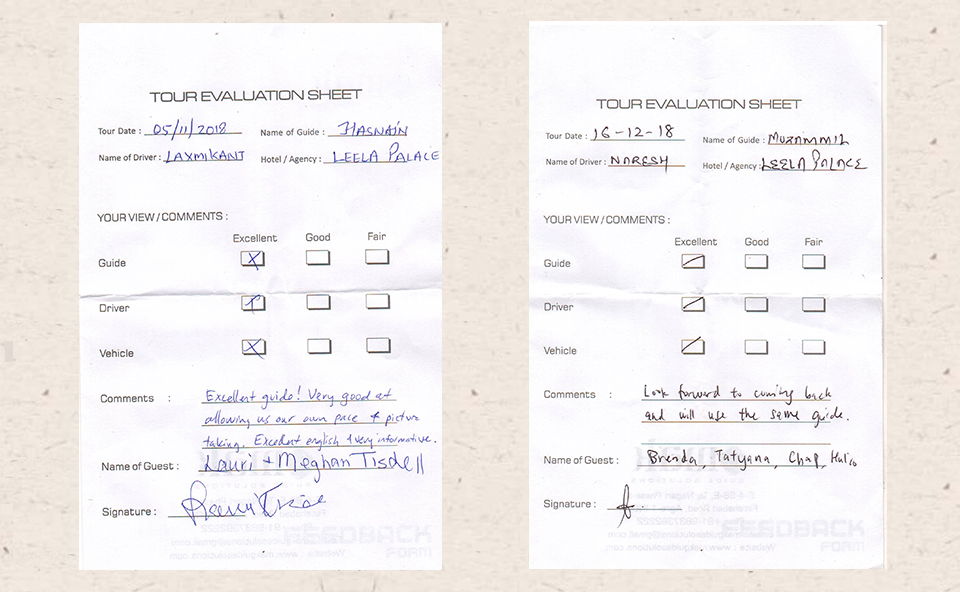 TOUR EVALUATION SHEET
Tour Date : 05/11/2018 Name of Guide : HASNAIN
Name of Driver : LAXMIKANT Hotel / Agency : LEELA PALACE
YOUR VIEW / COMMENTS :
Excellent Good Fair
Guide
Driver
Vehicle
Comments : Excellent guide! Very good at
allowing us our own pace & picture
taking. Excellent english & very informative.
Name of Guest : Lauri + Meghan Tisdell
Signature :
TOUR EVALUATION SHEET
Tour Date : 16-12-18 Name of Guide : MUZAMMIL
Name of Driver : NARESH Hotel / Agency : LEELA PALACE
YOUR VIEW / COMMENTS :
Excellent Good Fair
Guide
Driver
Vehicle
Comments : Look forward to coming back
and will use the same guide.
Name of Guest : Brenda, Tatyana,
Signature :
FEEDBACK
FORM